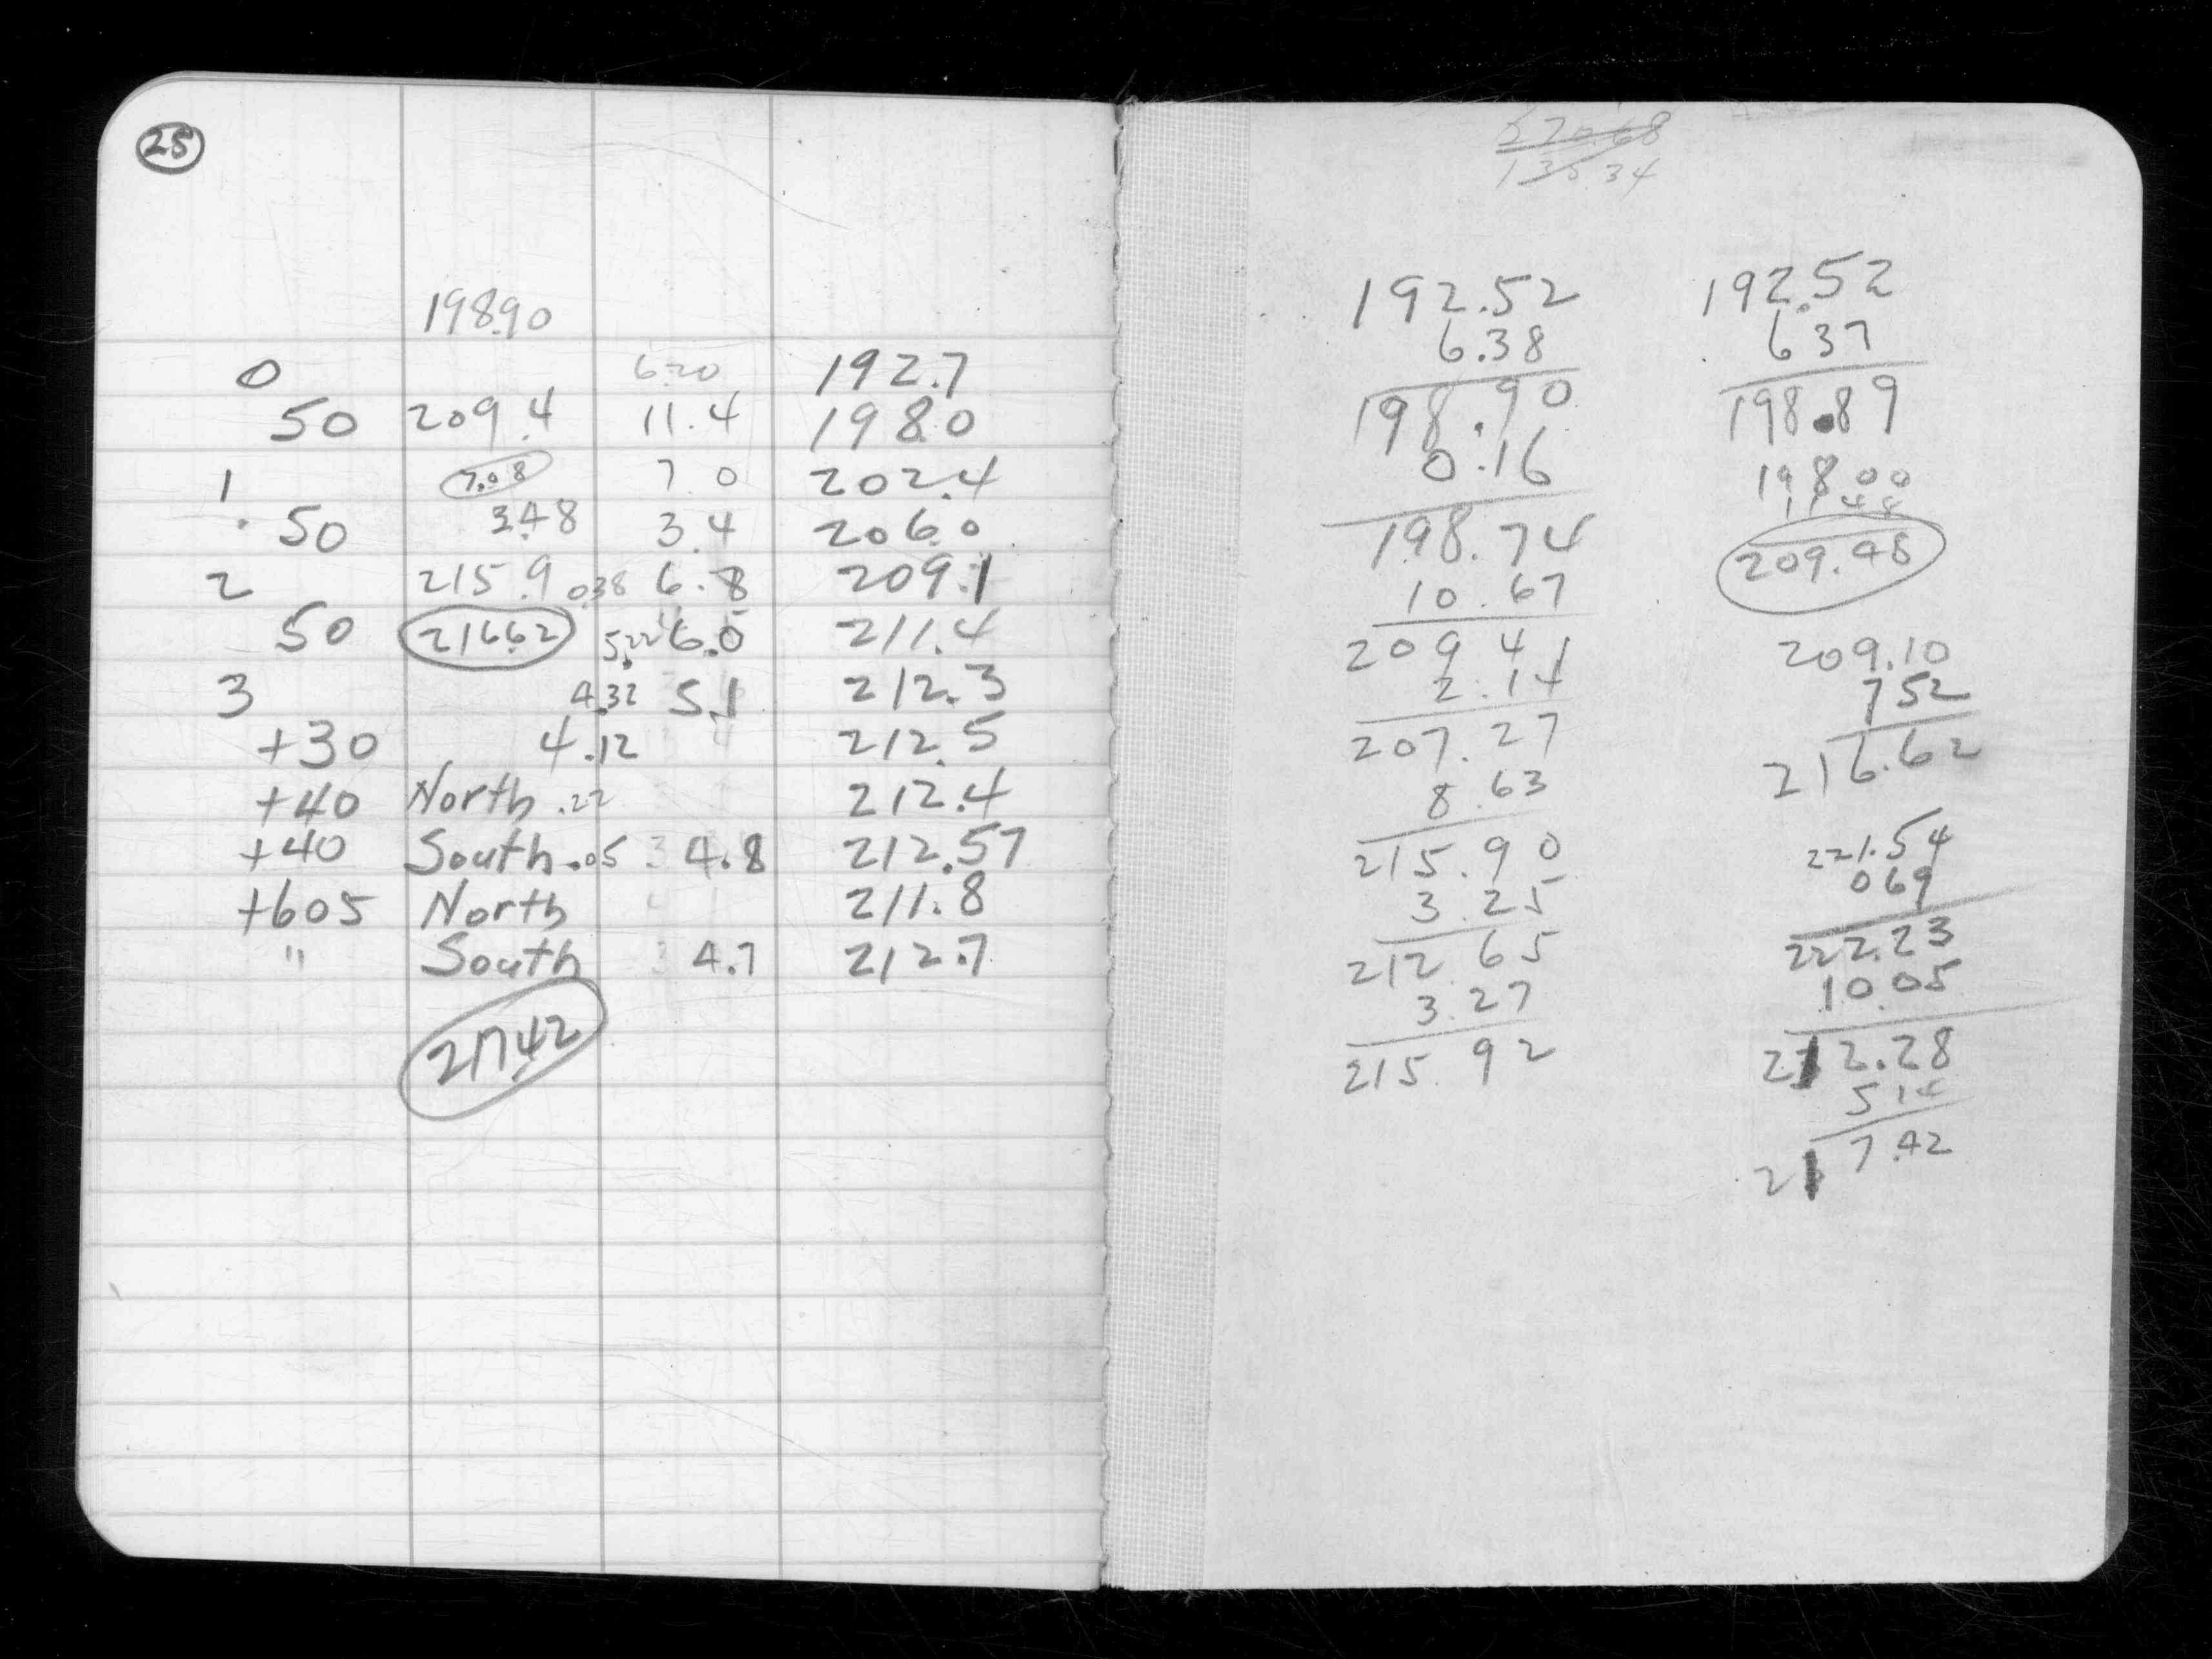 25
198.90
0 6.20 192.7
50 209.4 11.4 198.0
1 7.08 7.0 202.4
50 3.48 3.4 206.0
2 215.9 0.38 6.8 209.1
50 216.62 5.22 6.0 211.4
3 4.32 5.1 212.3
+30 4.12 212.5
+40 North .22 212.4
+40 South .05 4.8 212.57
+605 North 211.8
" South 4.7 212.7
217.42
270.68
135.34
192.52
6.38
198.90
0.16
198.74
10.67
209 41
2.14
207.27
8.63
215.90
3.25
212 65
3.27
215.92
192.52
637
198.89
198.00
11 48
209.48
209.10
752
216.62
221.54
069
222.23
10.05
212.28
514
217.42